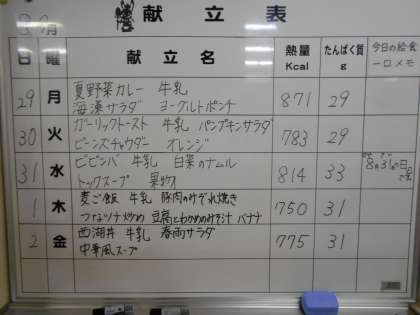 8,9月 献立表
日 曜 献立名 熱量 Kcal たんぱく質 g 今日の給食 一口メモ
29 月 夏野菜カレー 牛乳
海藻サラダ ヨーグルトポンチ 871 29
30 火 ガーリックトースト 牛乳 パンプキンサラダ
ビーンズチャウダー オレンジ 783 29
31 水 ビビンバ 牛乳 白菜のナムル
トックスープ 果物 814 33 8月31の日
1 木 麦ご飯 牛乳 豚肉のみぞれ焼き
つなツナ炒め 豆腐とわかめのみそ汁 バナナ 750 31
2 金 西湖丼 牛乳 春雨サラダ
中華風スープ 775 31